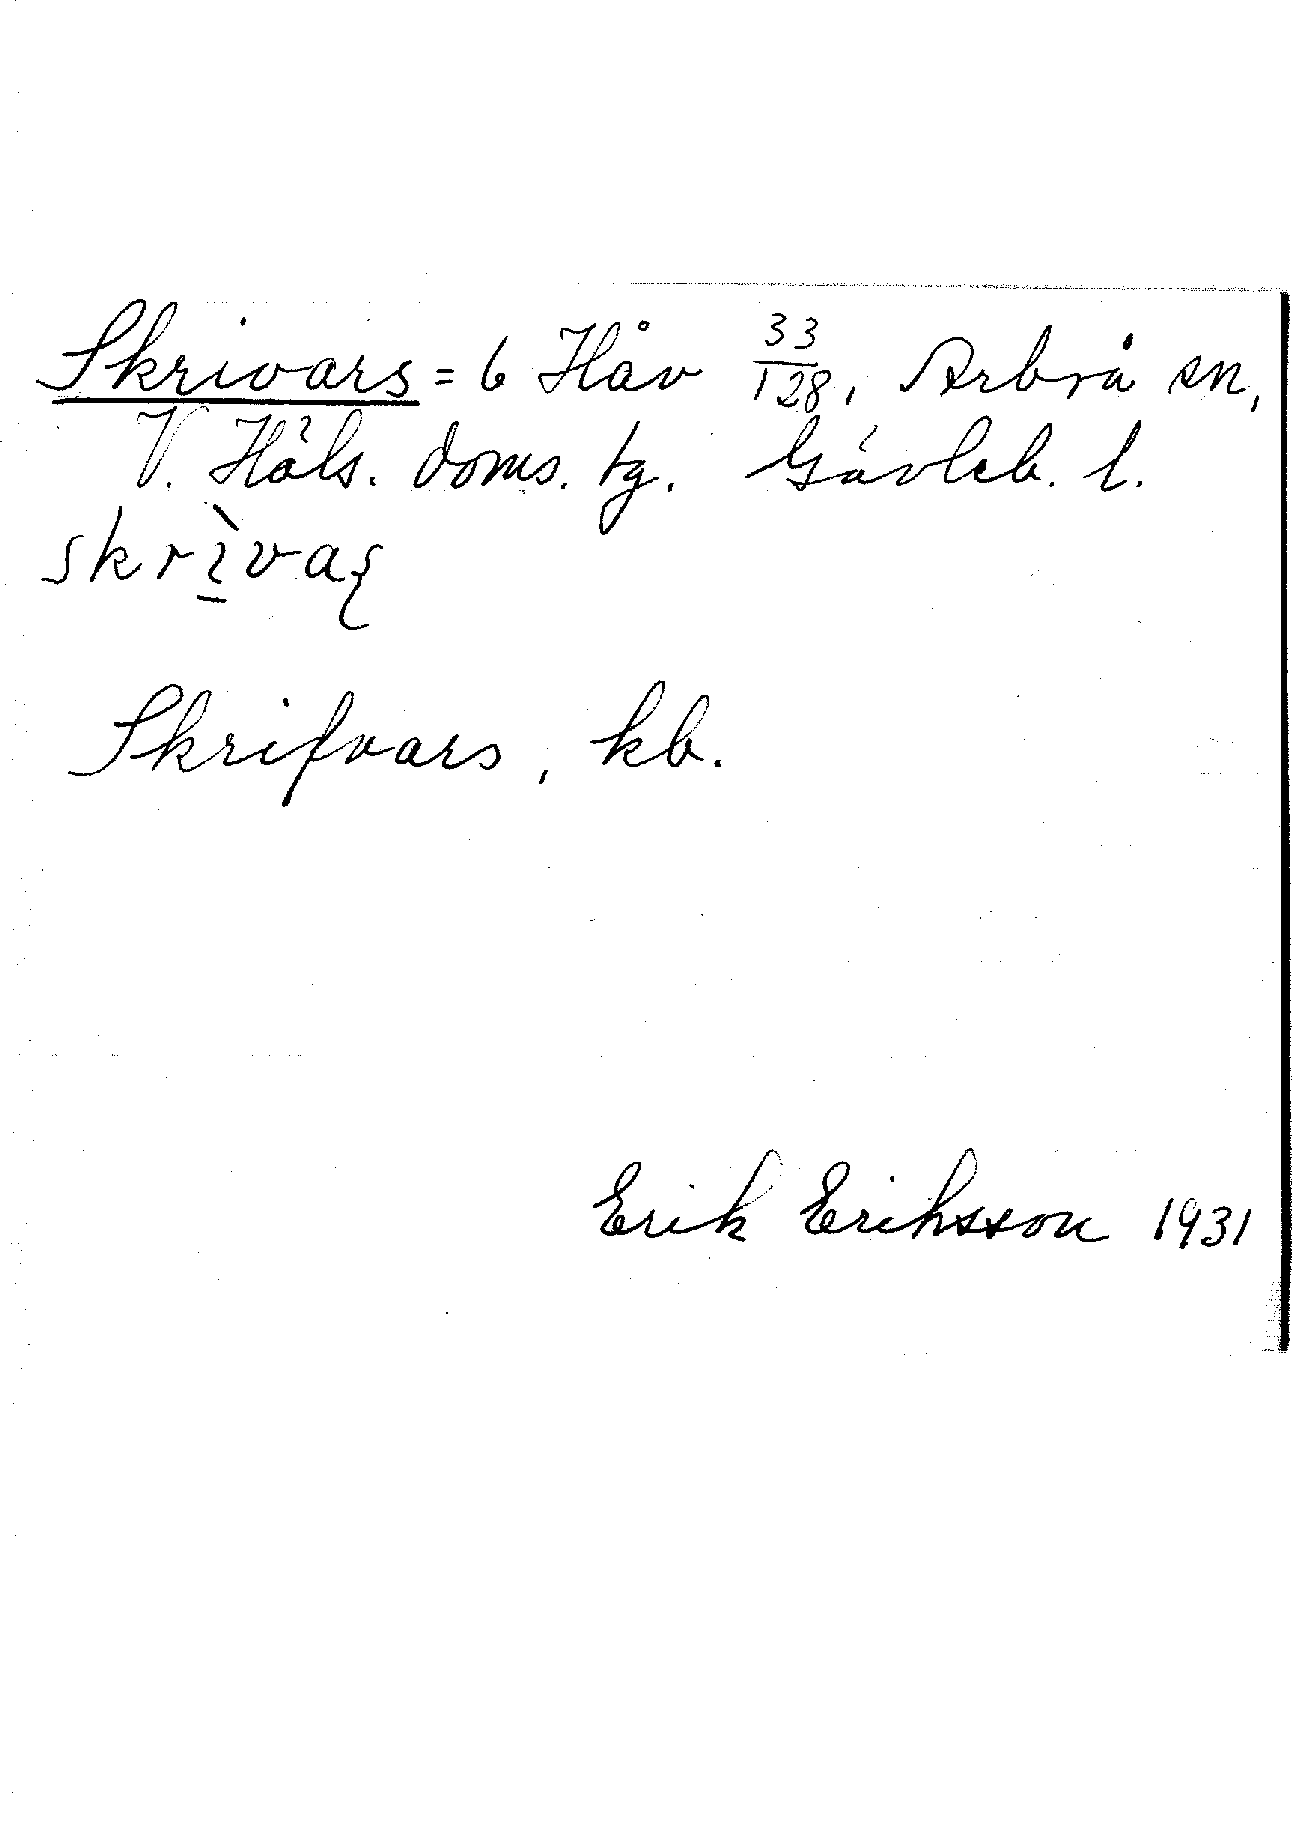 Skrivars = 6 Håv 33/128, Arbrå sn,
V. Häls. doms. tg. Gävleb. l.
skrì̱vaʂ
Skrifvars, kb.
Erik Eriksson 1931